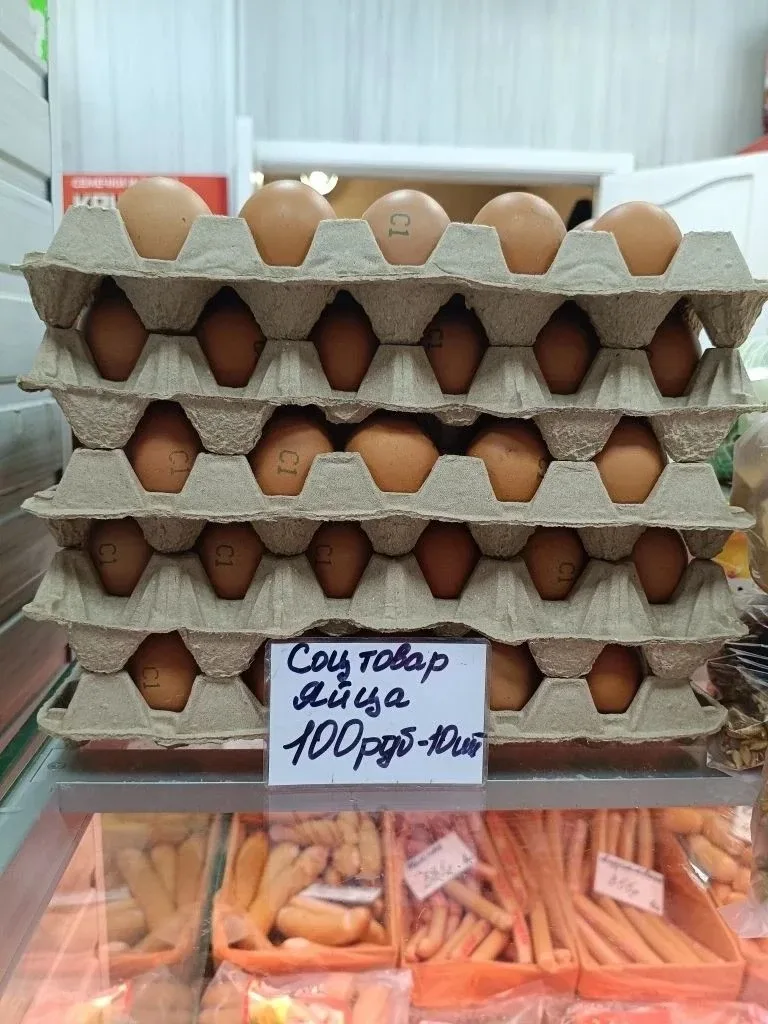 СЕМЕЧКИ
С1
С1
С1
С1
С1
С1
С1
С1
Соцтовар
яйца
100руб-10шт